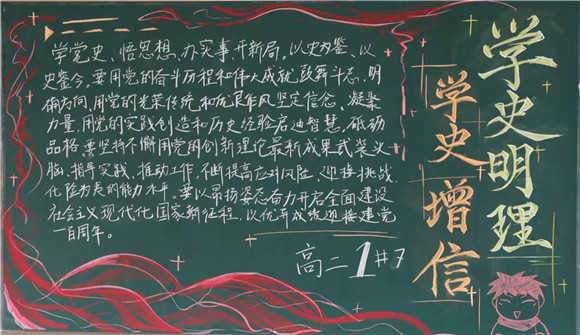 学史明理
学史增信
学党史、悟思想、办实事、开新局。以史为鉴、以
史鉴今。要用党的奋斗历程和伟大成就鼓舞斗志、明
确方向,用党的光荣传统和优良作风坚定信念、凝聚
力量,用党的实践创造和历史经验启迪智慧、砥砺
品格。要坚持不懈用党的创新理论最新成果武装头
脑、指导实践、推动工作,不断提高应对风险、迎接挑战、
化险为夷的能力水平。要以昂扬姿态奋力开启全面建设
社会主义现代化国家新征程,以优异成绩迎接建党
一百周年。
高二1#7